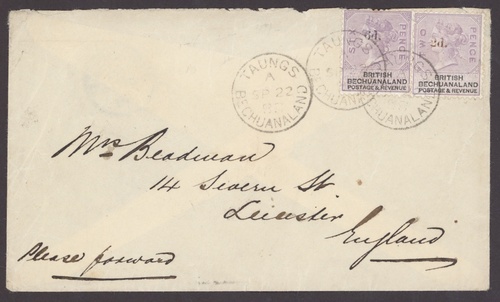 TWO PENCE
2d.
BRITISH
BECHUANALAND
POSTAGE & REVENUE
PENCE
2d.
BRITISH
BECHUANALAND
POSTAGE & REVENUE
TAUNGS
A
SP 22
88
BECHUANALAND
TAUNGS
BECHUANALAND
BECHUANALAND
Mrs Beadman
14 Severn St
Leicester
England
Please forward